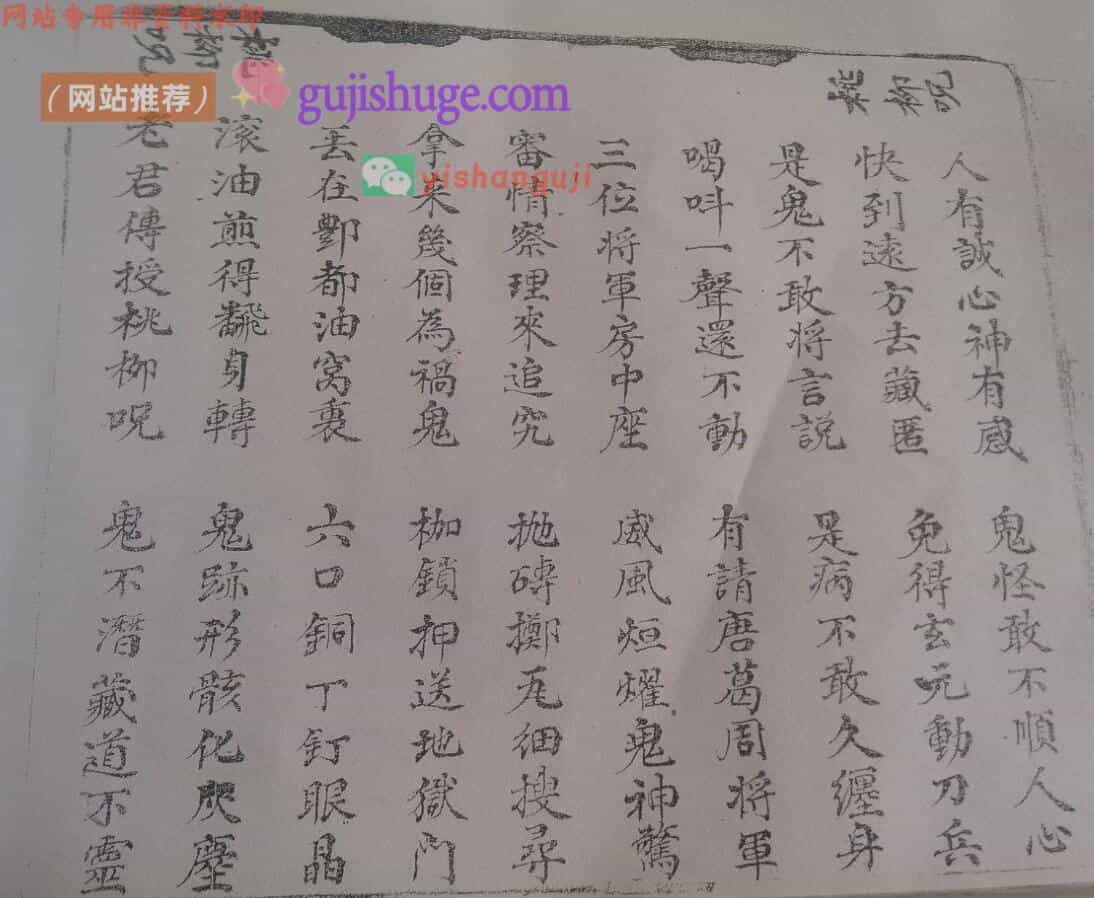 网站专用非资料水印
（网站推荐）
gujishuge.com
yishanguji
桃柳咒
人有誠心神有感 鬼怪敢不順人心
快到遠方去藏匿 免得玄元動刀兵
是鬼不敢将言説 是病不敢久纏身
喝呌一聲還不動 有請唐葛周将軍
三位将軍房中座 威風烜燿鬼神驚
審情察理來追究 抛磚擲瓦细搜尋
拿来幾個為禍鬼 枷鎖押送地獄门
丢在酆都油窝裏 六口銅丁釘眼晶
滚油煎得飜身轉 鬼跡形骸化灰塵
老君傳授桃柳呪 鬼不潛藏道不靈